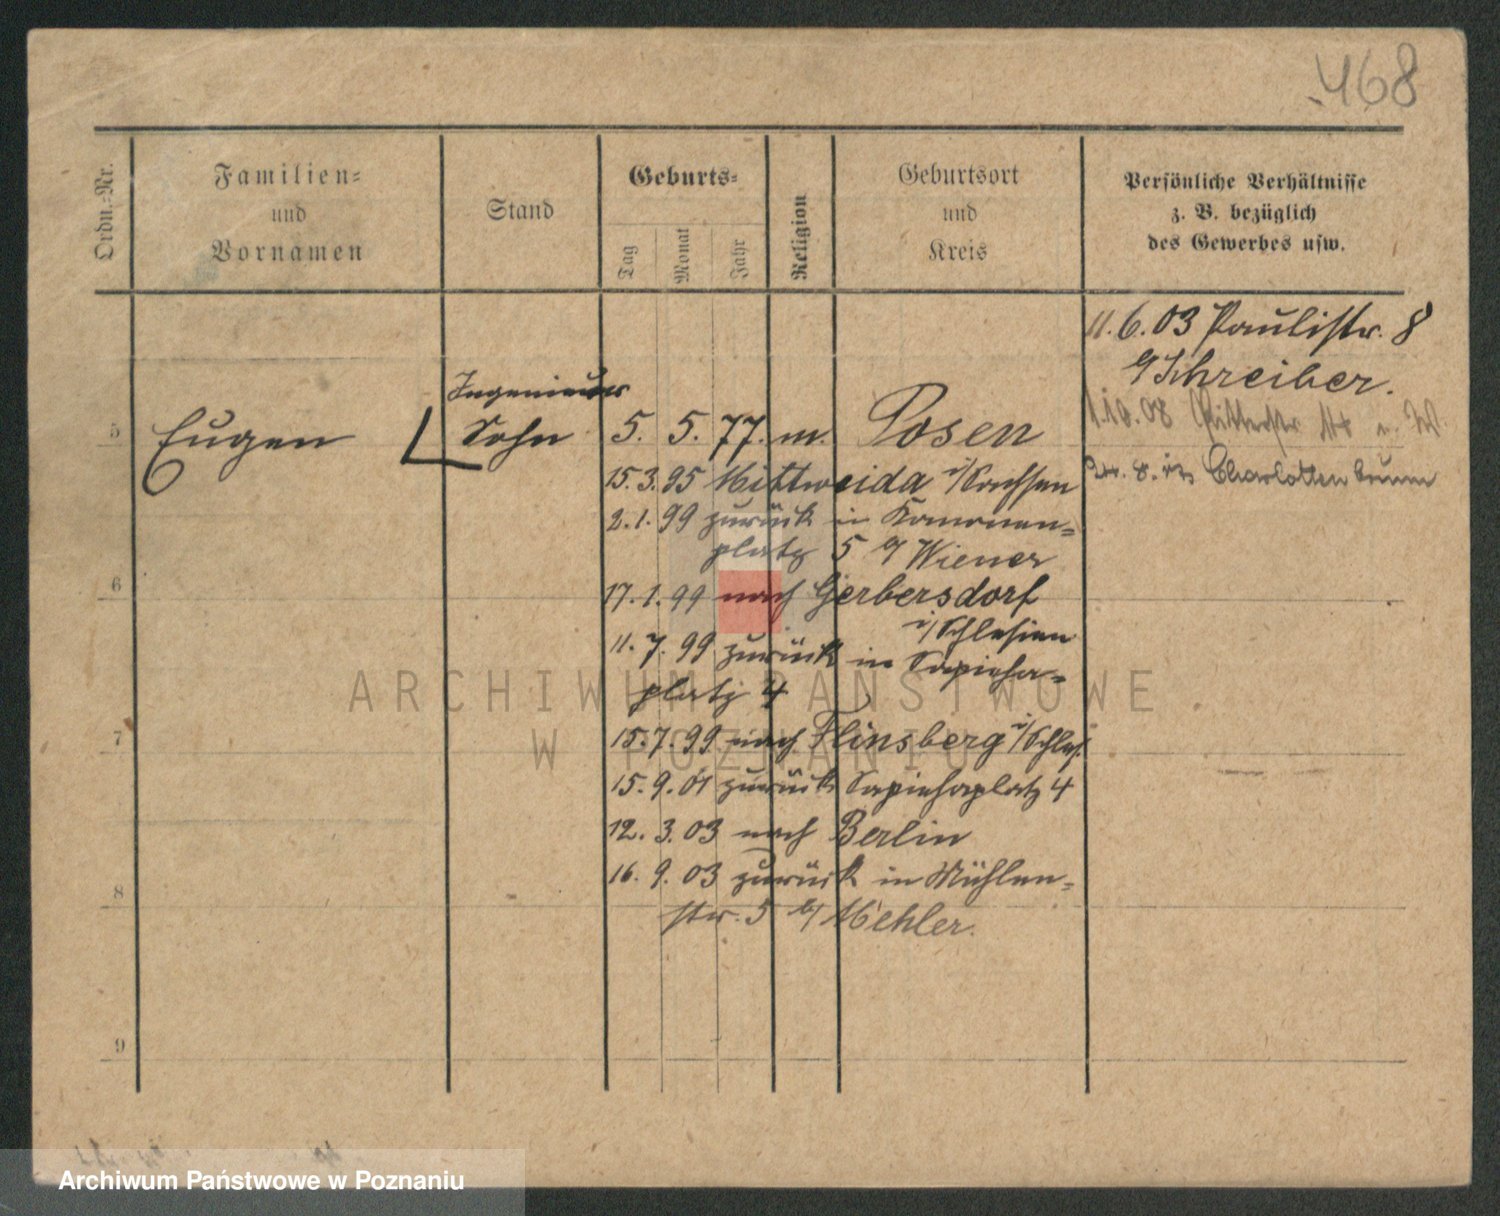 468
Ordn.-Nr.
Familien-
und
Vornamen
Stand
Geburts-
Tag
Monat
Jahr
Religion
Geburtsort
und
Kreis
Persönliche Verhältnisse
z. B. bezüglich
des Gewerbes usw.
11.6.03 Paulistr. 8
b/ Schreiber.
Ingenieur
5 Eugen Sohn 5. 5. 77. m. Posen
1.10.08 Ritterstr. u. W.
15.3.95 Mittweida i/Sachsen
8. Charlottenbrunn
2.1.99 zurück in Kanonen=
platz 5 b/ Wiener
6
17.1.99 nach Görbersdorf
i/Schlesien
11.7.99 zurück in Sapieha-
platz 4
7
15.7.99 nach Flinsberg i/Schles.
15.9.01 zurück Sapiehaplatz 4
12.3.03 nach Berlin
8
16.9.03 zurück in Mühlen=
str. 5 b/ Mehler.
9
ARCHIWUM PAŃSTWOWE
W POZNANIU
Archiwum Państwowe w Poznaniu